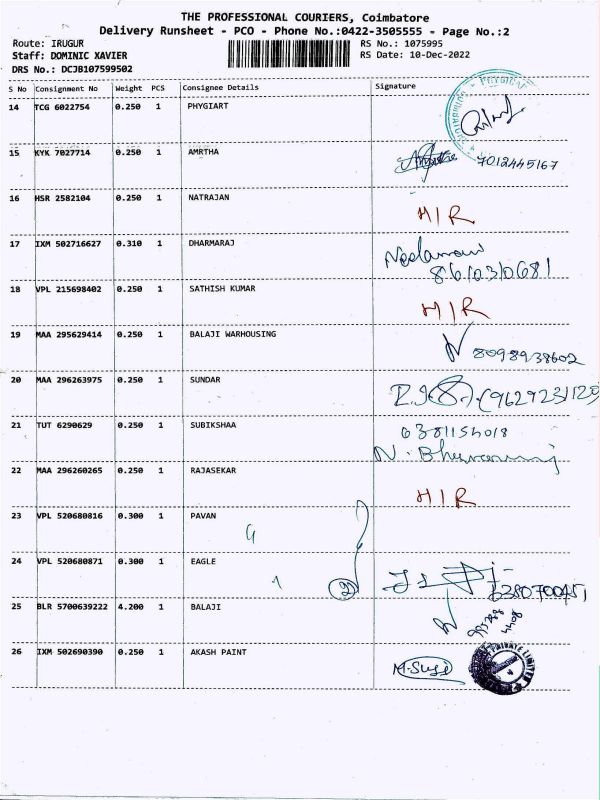 THE PROFESSIONAL COURIERS, Coimbatore
Delivery Runsheet - PCO - Phone No.:0422-3505555 - Page No.:2
Route: IRUGUR
RS No.: 1075995
Staff: DOMINIC XAVIER
RS Date: 10-Dec-2022
DRS No.: DCJB107599502
S No Consignment No Weight PCS Consignee Details Signature
14 TCG 6022754 0.250 1 PHYGIART
15 KYK 7027714 0.250 1 AMRTHA 7012445167
16 HSR 2582104 0.250 1 NATRAJAN HIR
17 IXM 502716627 0.310 1 DHARMARAJ
18 VPL 215698402 0.250 1 SATHISH KUMAR HIR
19 MAA 295629414 0.250 1 BALAJI WARHOUSING 8098938602
20 MAA 296263975 0.250 1 SUNDAR
21 TUT 6290629 0.250 1 SUBIKSHAA
22 MAA 296260265 0.250 1 RAJASEKAR HIR
23 VPL 520680816 0.300 1 PAVAN
24 VPL 520680871 0.300 1 EAGLE
25 BLR 5700639222 4.200 1 BALAJI
26 IXM 502690390 0.250 1 AKASH PAINT M.Suji
PRIVATE LIMITED